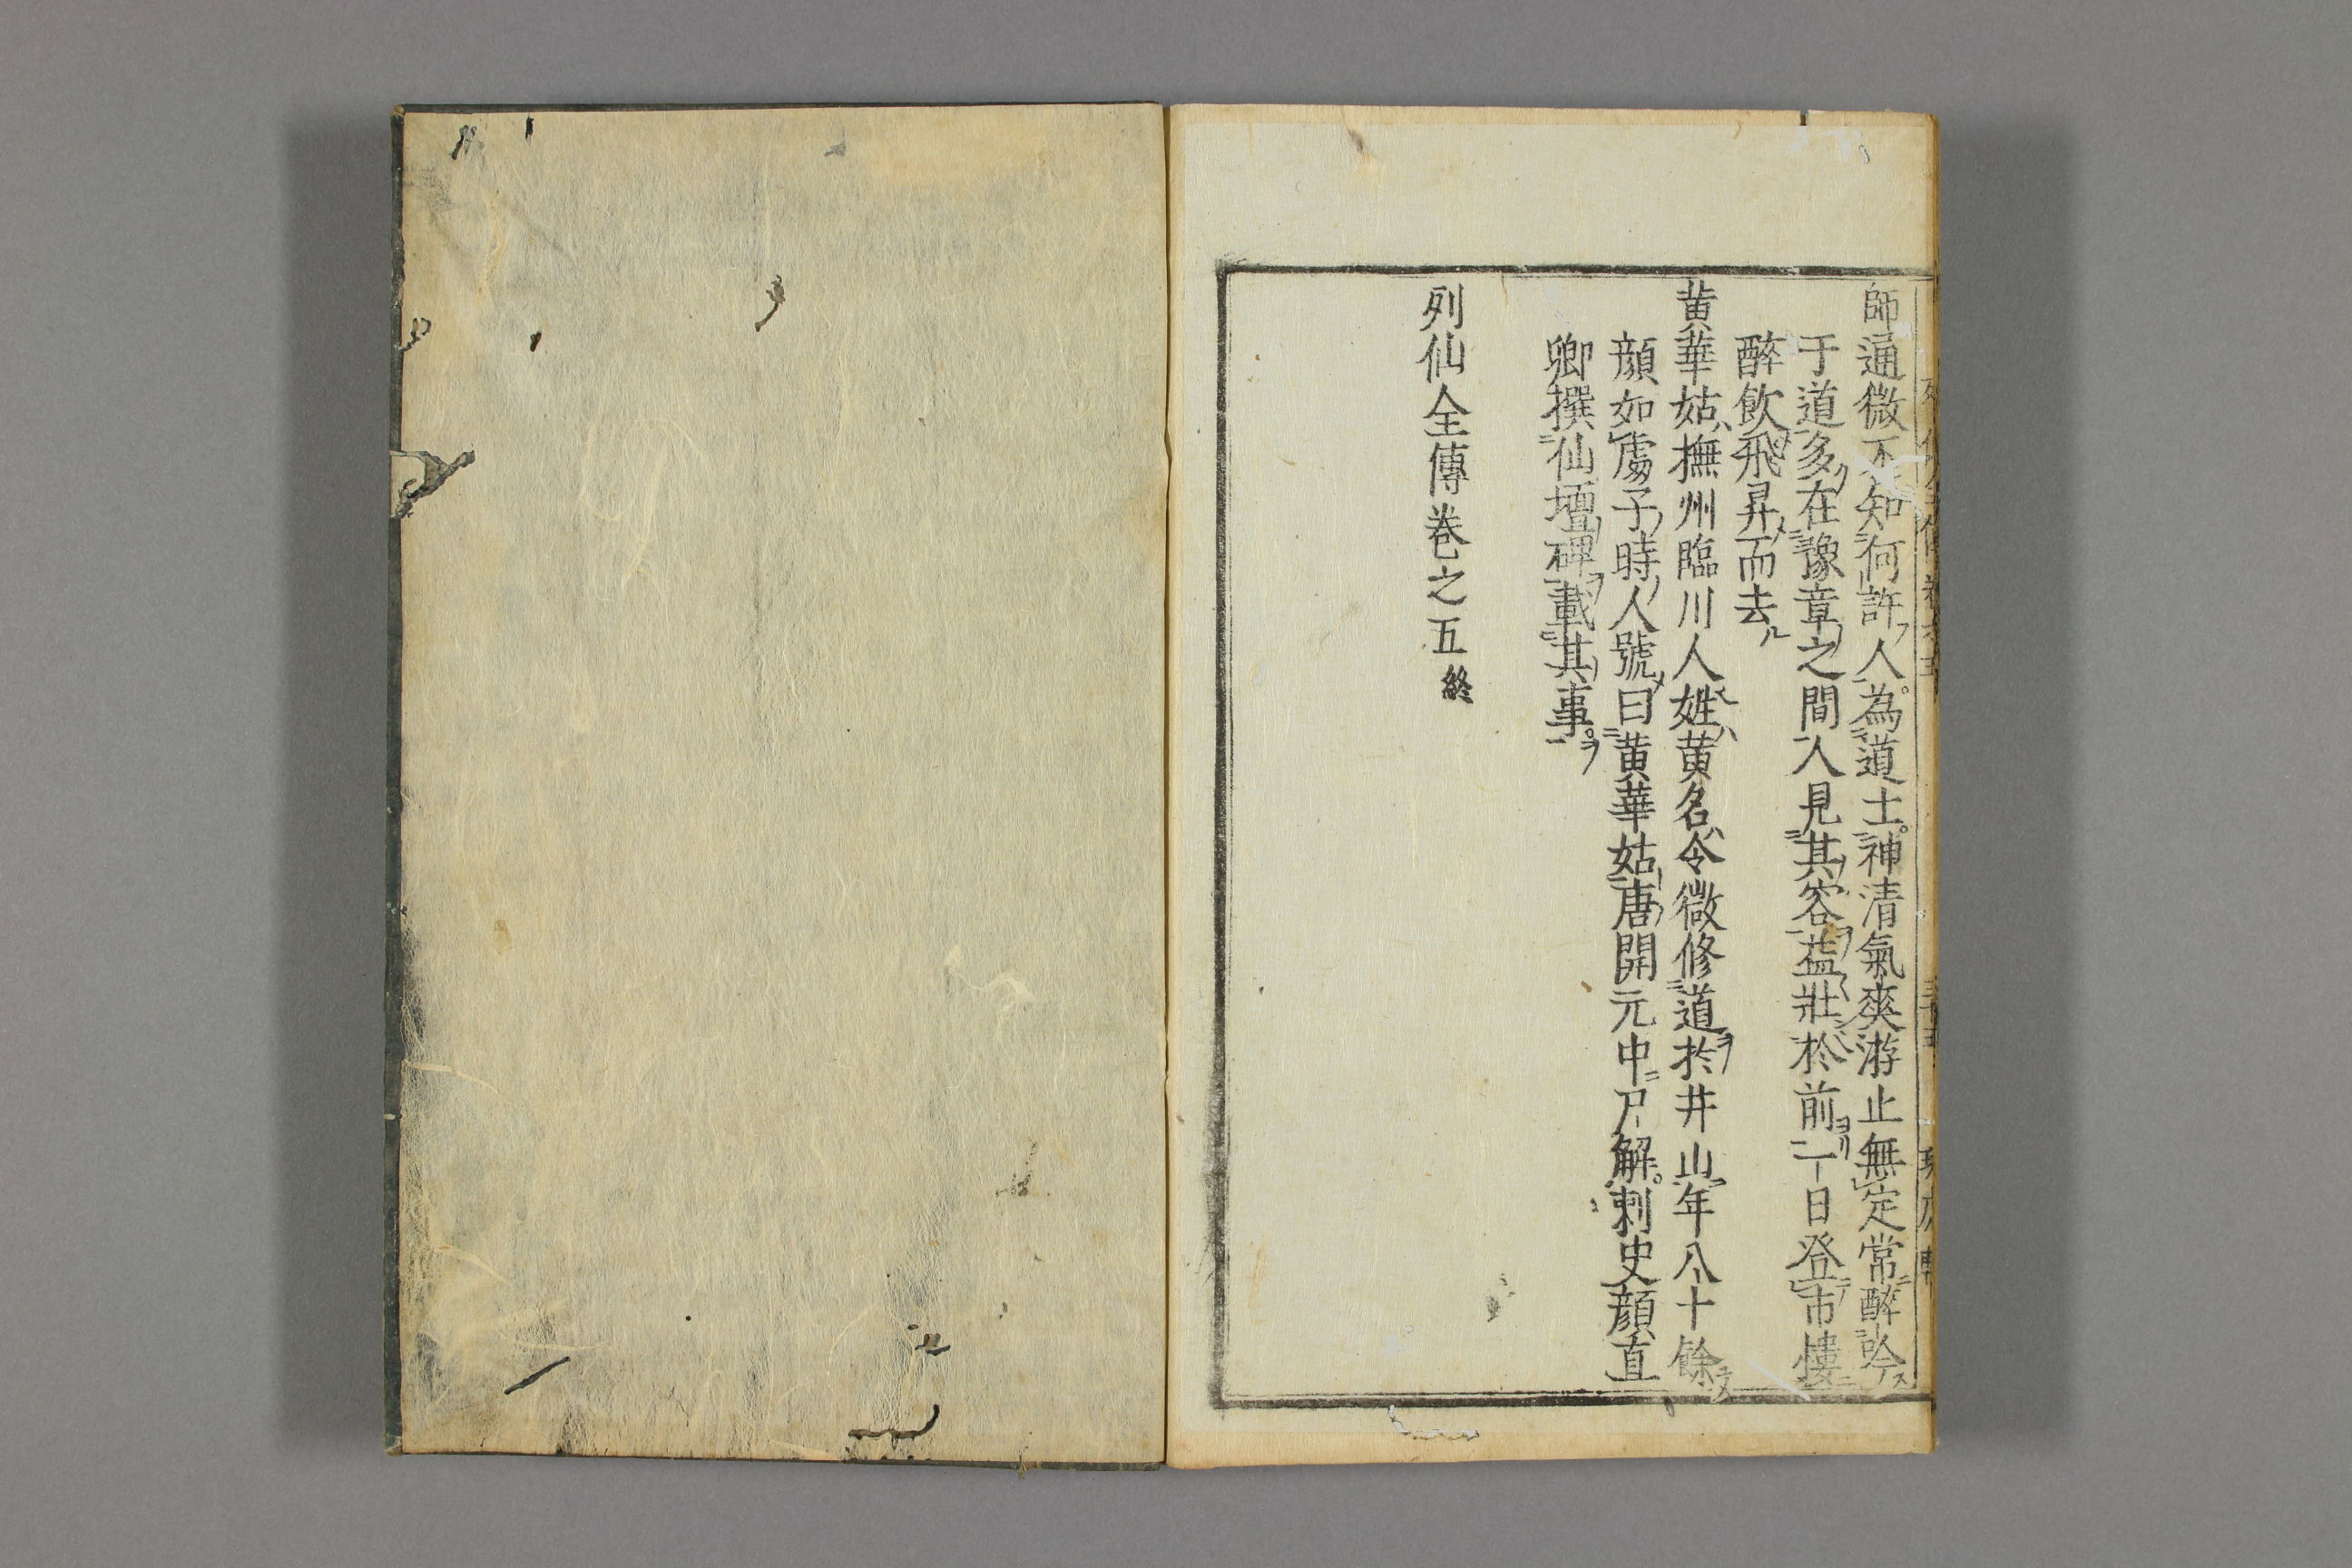 師通微不知何許人為道士神清氣爽游止無定常醉吟
于道多在豫章之間人見其容益壯於前一日登市樓
醉飲飛昇而去
黄華姑撫州臨川人姓黄名令微修道於井山年八十餘
顔如處子時人號曰黄華姑唐開元中尸解刺史顔直
卿撰仙壇碑載其事
列仙全傳卷之五終